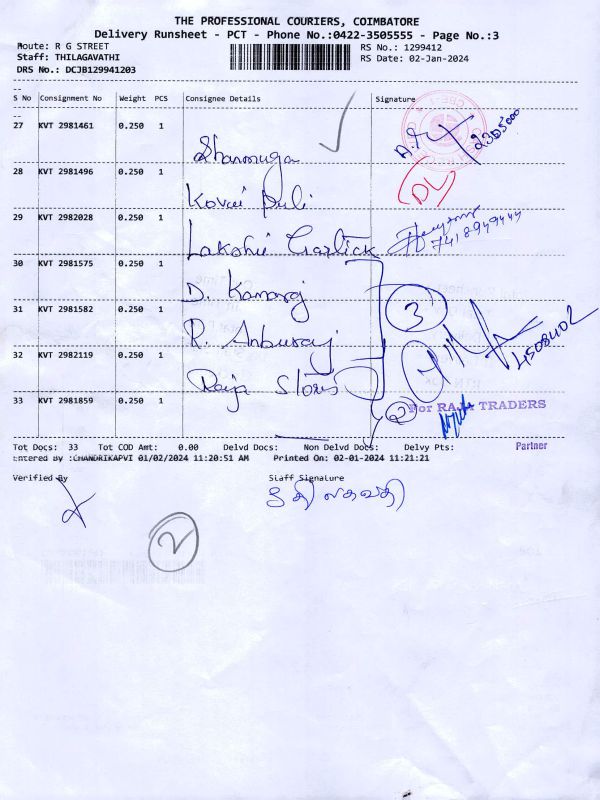 THE PROFESSIONAL COURIERS, COIMBATORE
Delivery Runsheet - PCT - Phone No.:0422-3505555 - Page No.:3
Route: R G STREET RS No.: 1299412
Staff: THILAGAVATHI RS Date: 02-Jan-2024
DRS No.: DCJB129941203
S No Consignment No Weight PCS Consignee Details Signature
27 KVT 2981461 0.250 1
Shanmuga
28 KVT 2981496 0.250 1
Kovai
DL
29 KVT 2982028 0.250 1
Lakshmi
7418949444
30 KVT 2981575 0.250 1
D. Kamaraj
3
31 KVT 2981582 0.250 1
R. Anburaj
32 KVT 2982119 0.250 1
Raja Stores
33 KVT 2981859 0.250 1
2
For RAJA TRADERS
Partner
Tot Docs: 33 Tot COD Amt: 0.00 Delvd Docs: Non Delvd Docs: Delvy Pts:
Entered By :CHANDRIKAPVI 01/02/2024 11:20:51 AM Printed On: 02-01-2024 11:21:21
Verified By Staff Signature
திலகவதி
2